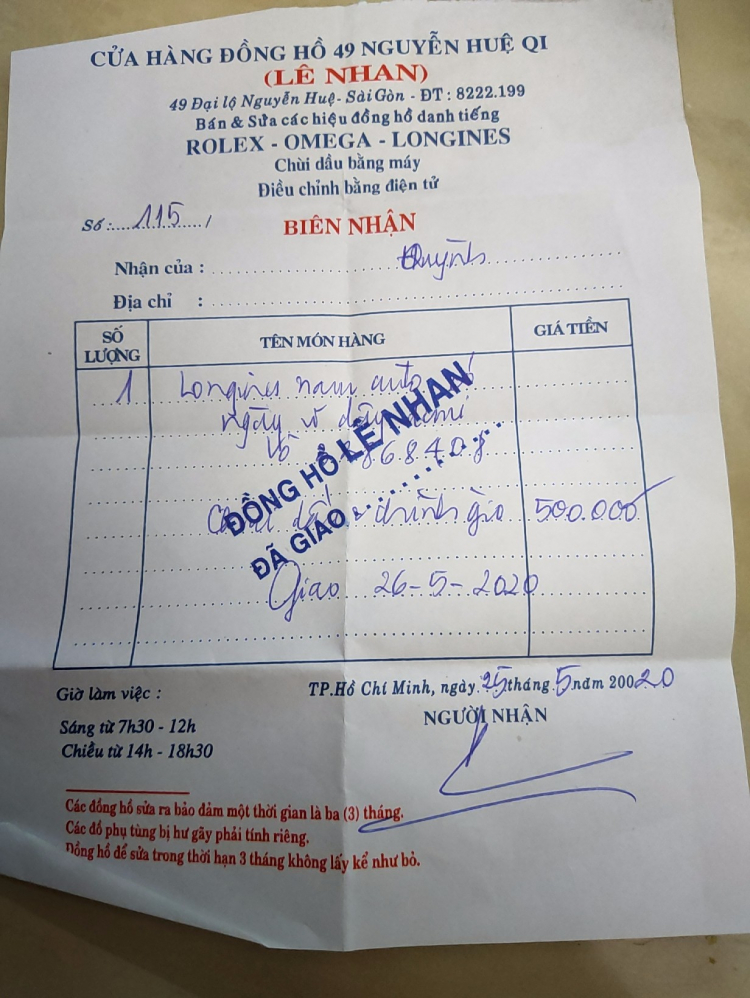 CỬA HÀNG ĐỒNG HỒ 49 NGUYỄN HUỆ QI
(LÊ NHAN)
49 Đại lộ Nguyễn Huệ - Sài Gòn - ĐT : 8222.199
Bán & Sửa các hiệu đồng hồ danh tiếng
ROLEX - OMEGA - LONGINES
Chùi dầu bằng máy
Điều chỉnh bằng điện tử
Số : 115
BIÊN NHẬN
Nhận của : Quỳnh
Địa chỉ :
SỐ LƯỢNG TÊN MÓN HÀNG GIÁ TIỀN
1 Longines nam auto
ngày vỏ dây
vỏ 86.8.4.0.8
ĐỒNG HỒ LÊ NHAN
ĐÃ GIAO
dầu chỉnh giờ 500.000
Giao 26-5-2020
Giờ làm việc :
Sáng từ 7h30 - 12h
Chiều từ 14h - 18h30
TP.Hồ Chí Minh, ngày 25 tháng 5 năm 20020
NGƯỜI NHẬN
Các đồng hồ sửa ra bảo đảm một thời gian là ba (3) tháng.
Các đồ phụ tùng bị hư gãy phải tính riêng.
Đồng hồ để sửa trong thời hạn 3 tháng không lấy kể như bỏ.